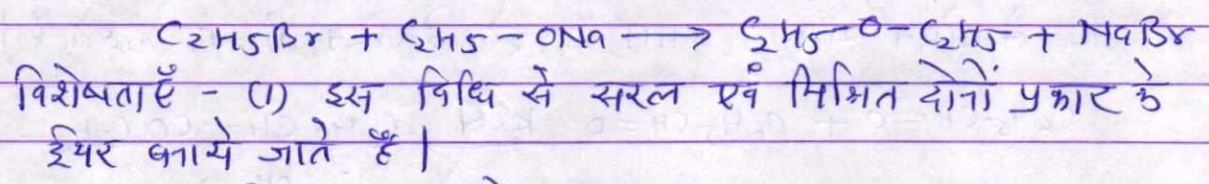 C2H5Br + C2H5-ONa → C2H5-O-C2H5 + NaBr
विशेषताएँ - (1) इस विधि से सरल एवं मिश्रित दोनों प्रकार के
ईथर बनाये जाते हैं|